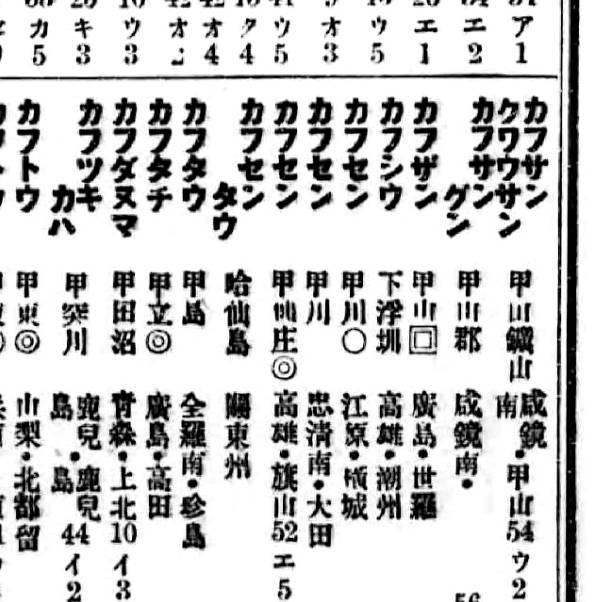 ア1
エ2
エ1
ウ5
オ3
ウ5
ク4
オ4
オ
ウ3
キ3
カ5
カフサン
クワウサン
甲山鑛山
咸鏡南・甲山54ウ2
カフサングン
甲山郡
咸鏡南・
56
カフザン
甲山□
廣島・世羅
カフシウ
下浮圳
高雄・潮州
カフセン
甲川○
江原・橫城
カフセン
甲川
忠淸南・大田
カフセン
甲仙庄◎
高雄・旗山52エ5
カフセンタウ
哈仙島
關東州
カフタウ
甲島
全羅南・珍島
カフタチ
甲立◎
廣島・高田
カフダヌマ
甲田沼
靑森・上北10イ3
カフツキカハ
甲突川
鹿兒島・鹿兒島44イ2
カフトウ
甲東◎
山梨・北都留